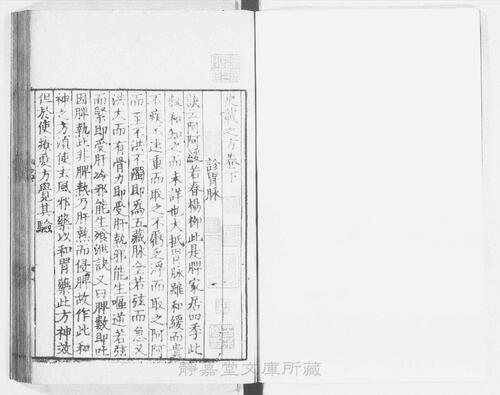 史載之方卷下
診胃脉
訣云阿阿緩若春楊柳此是脾家居四季此
叔和知之而未詳也大抵胃脉雖和緩而貴
不疾不速重而取之不衝之浮而取之阿阿
而至不洪不濁即為五藏脉全若弦而急又
洪大而有骨力即受肝熱邪能生嘔逆若弦
而緊即受肝冷邪能生飧泄訣又曰脾數即吐
因脾熱此非脾熱乃肝熱而侵脾故作此和
神之方須使去風邪藥以和胃藥此方神效
但於使療要方覺其驗
靜嘉堂文庫所藏